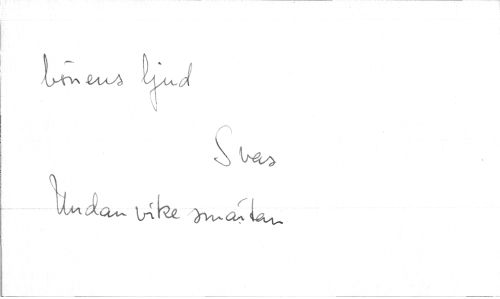 bönens ljud
Svas
Undan vike smärtan